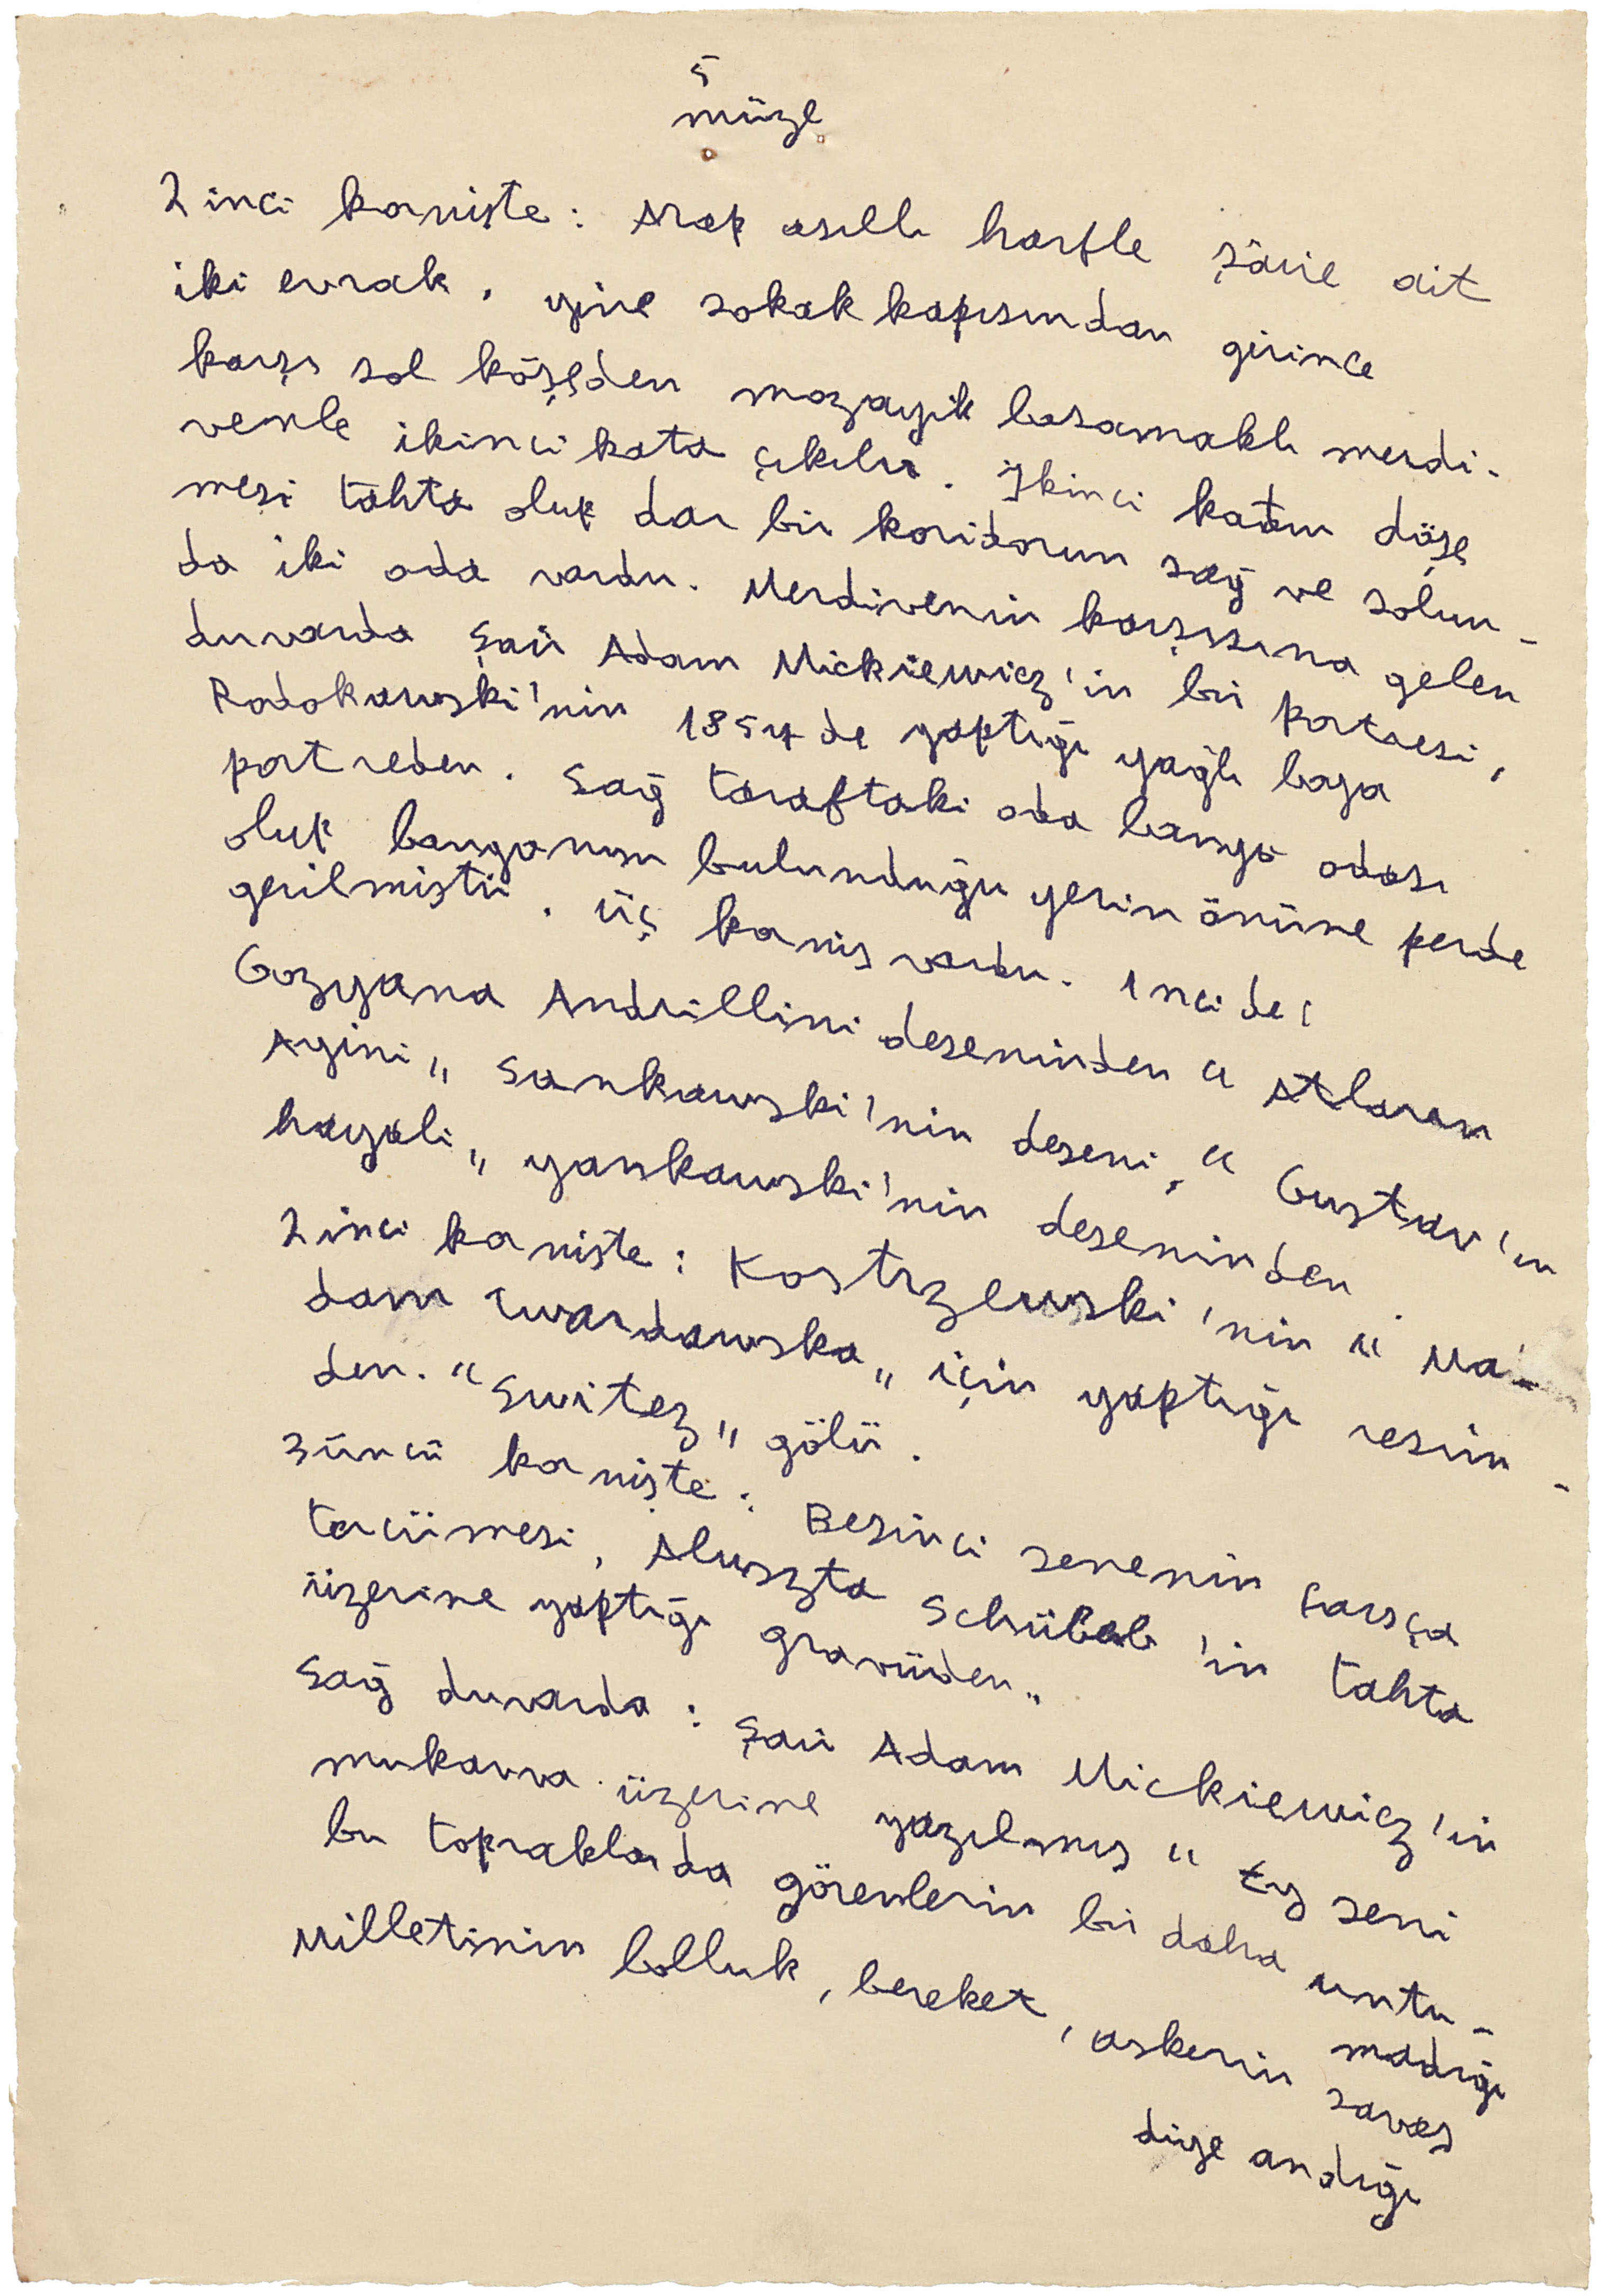 5
müze
2 inci kanişte : Arap asıllı harfle şâire ait
iki evrak. yine sokak kapısından girince
karşı sol köşeden mozayik basamaklı merdi-
venle ikinci kata çıkılır. İkinci katın döşe
mesi tahta olup dar bir koridorun sağ ve solun-
da iki oda vardır. Merdivenin karşısına gelen
duvarda şair Adam Mickiewicz'in bir portresi,
Rodokowski'nin 1854 de yaptığı yağlı boya
portreden. Sağ taraftaki oda banyo odası
olup banyonun bulunduğu yerin önüne perde
gerilmiştir. Üç kaniş vardır. 1 nci de:
Gozyana Andrillini deseninden "Atlaren
Ayini" Sankowski'nin deseni, "Gustav'ın
hayali" yankowski'nin deseninden.
2 inci kanişte : Kostrzewski'nin "Ma-
dam Twardowska" için yaptığı resim-
den. "Switez" gölü.
3üncü kanişte : Beşinci senenin Farsça
tercümesi, Aluszta Schübeb'in tahta
üzerine yaptığı gravürden"
Sağ duvarda : Şair Adam Mickiewicz'in
mukavva üzerine yazılmış "Ey seni
bu topraklarda görenlerin bir daha untu-
madığı
Milletinin bolluk, bereket, askerin savaş
diye andığı